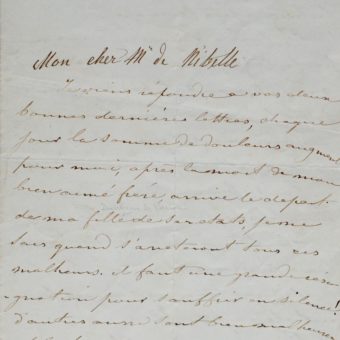 Mon cher Mr de Nibelle
Je viens répondre à vos deux
bonnes dernières lettres, chaque
jour la somme de douleurs augment
pour moi, après la mort de mon
bien aimé frère arrive le départ
de ma fille de ses états, je ne
sais quand s'arreteront tous ces
malheurs. il faut une grande rési
gnation pour souffrir en silence!
d'autres aussi sont bien malheureux